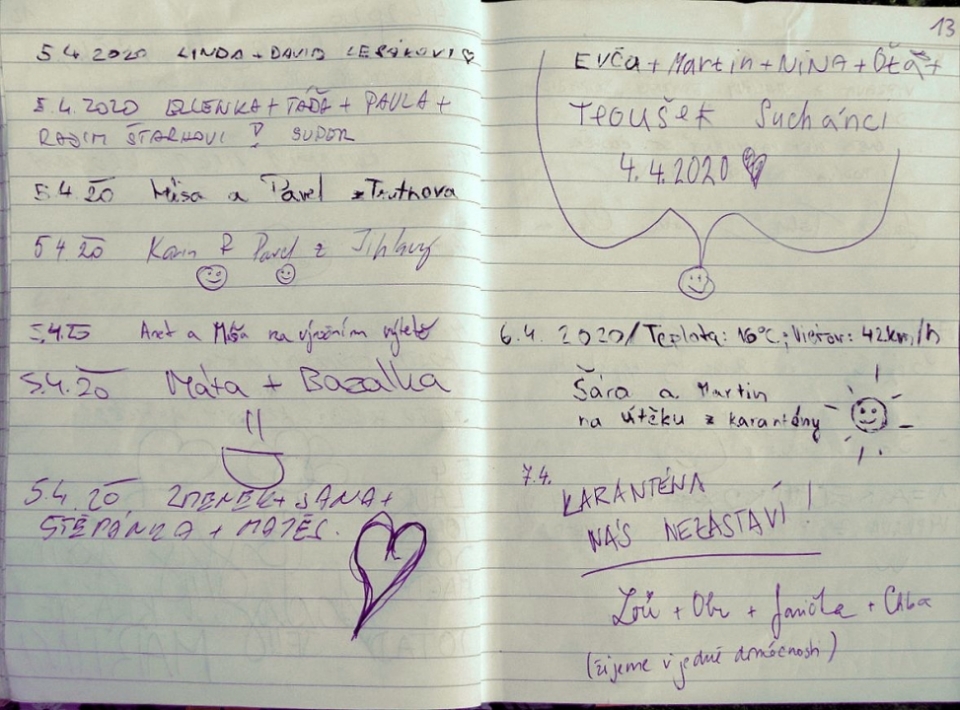 5.4 2020 LINDA + DAVID
5.4.2020 + TÁĎA + PAULA +
RADIM ŠTARKOVI ! SUPER
5.4.20 Míša a Pavel z Trutnova
5.4.20 Karin Pavel z Jihlavy
5.4.20 a Míša na výročním výletě
5.4.20 Máta + Bazalka
5.4.20 ZDENEK + JANA +
ŠTĚPÁNKA + MATĚJ.
13
EVča + Martin + NiNA + Oťa +
Suchánci
4.4.2020
6.4. 2020/Teplota: 16°C; Vietor: 42km/h
Šára a Martin
na útěku z karantény
7.4.
KARANTÉNA
NÁS NEZASTAVÍ!
+ + Janička +
(žijeme v jedné domácnosti)